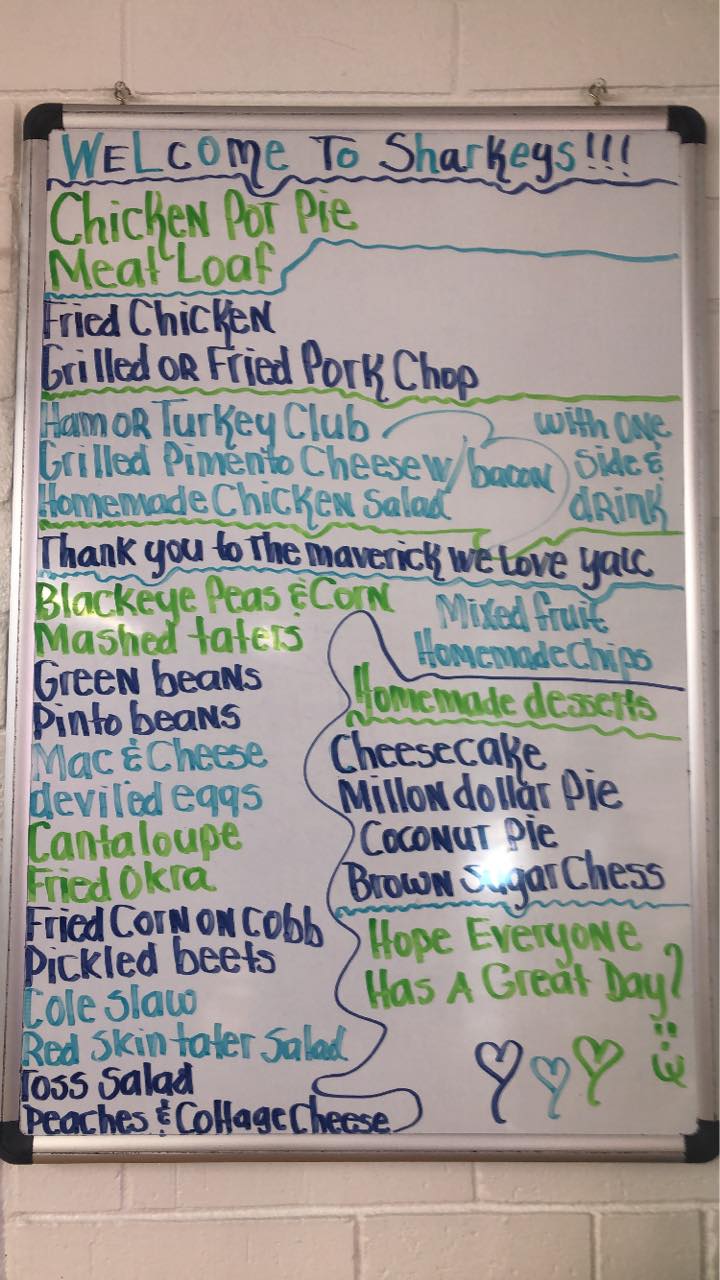 WELcome To Sharkeys!!!
Chicken Pot Pie
Meat Loaf
Fried Chicken
Grilled OR Fried Pork Chop
Ham OR Turkey Club
Grilled Pimento Cheese w/ bacon
Homemade Chicken Salad
with one
side &
drink
Thank you to The maverick we Love yalc
Blackeye Peas & Corn
Mashed taters
Green beans
Pinto beans
Mac & Cheese
deviled eggs
Cantaloupe
Fried Okra
Fried Corn on Cobb
Pickled beets
Cole slaw
Red Skin tater Salad
Toss Salad
Peaches & Cottage Cheese
Mixed fruit
Homemade Chips
Homemade desserts
Cheesecake
Millon dollar Pie
Coconut Pie
Brown Sugar Chess
Hope Everyone
Has A Great Day!